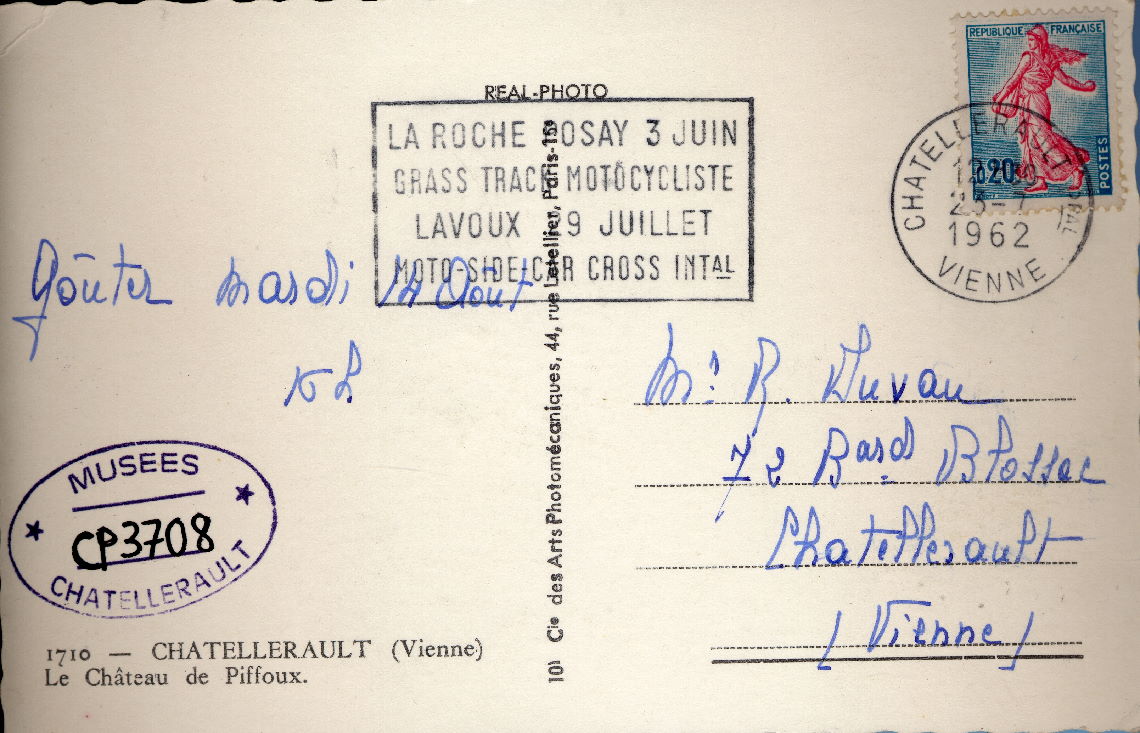 REPUBLIQUE FRANÇAISE
0,20
POSTES
CHATELLERAULT
1962
VIENNE
REAL-PHOTO
LA ROCHE POSAY 3 JUIN
GRASS TRACK MOTOCYCLISTE
LAVOUX 29 JUILLET
MOTO-SIDE-CAR CROSS INTAL
Goûter Mardi 14 Août
Mr R. Duvau
72 Bard Blossac
Chatellerault
(Vienne)
MUSEES
CP3708
CHATELLERAULT
1710 — CHATELLERAULT (Vienne)
Le Château de Piffoux.
101 Cie des Arts Photomécaniques, 44, rue Letellier, Paris-15e